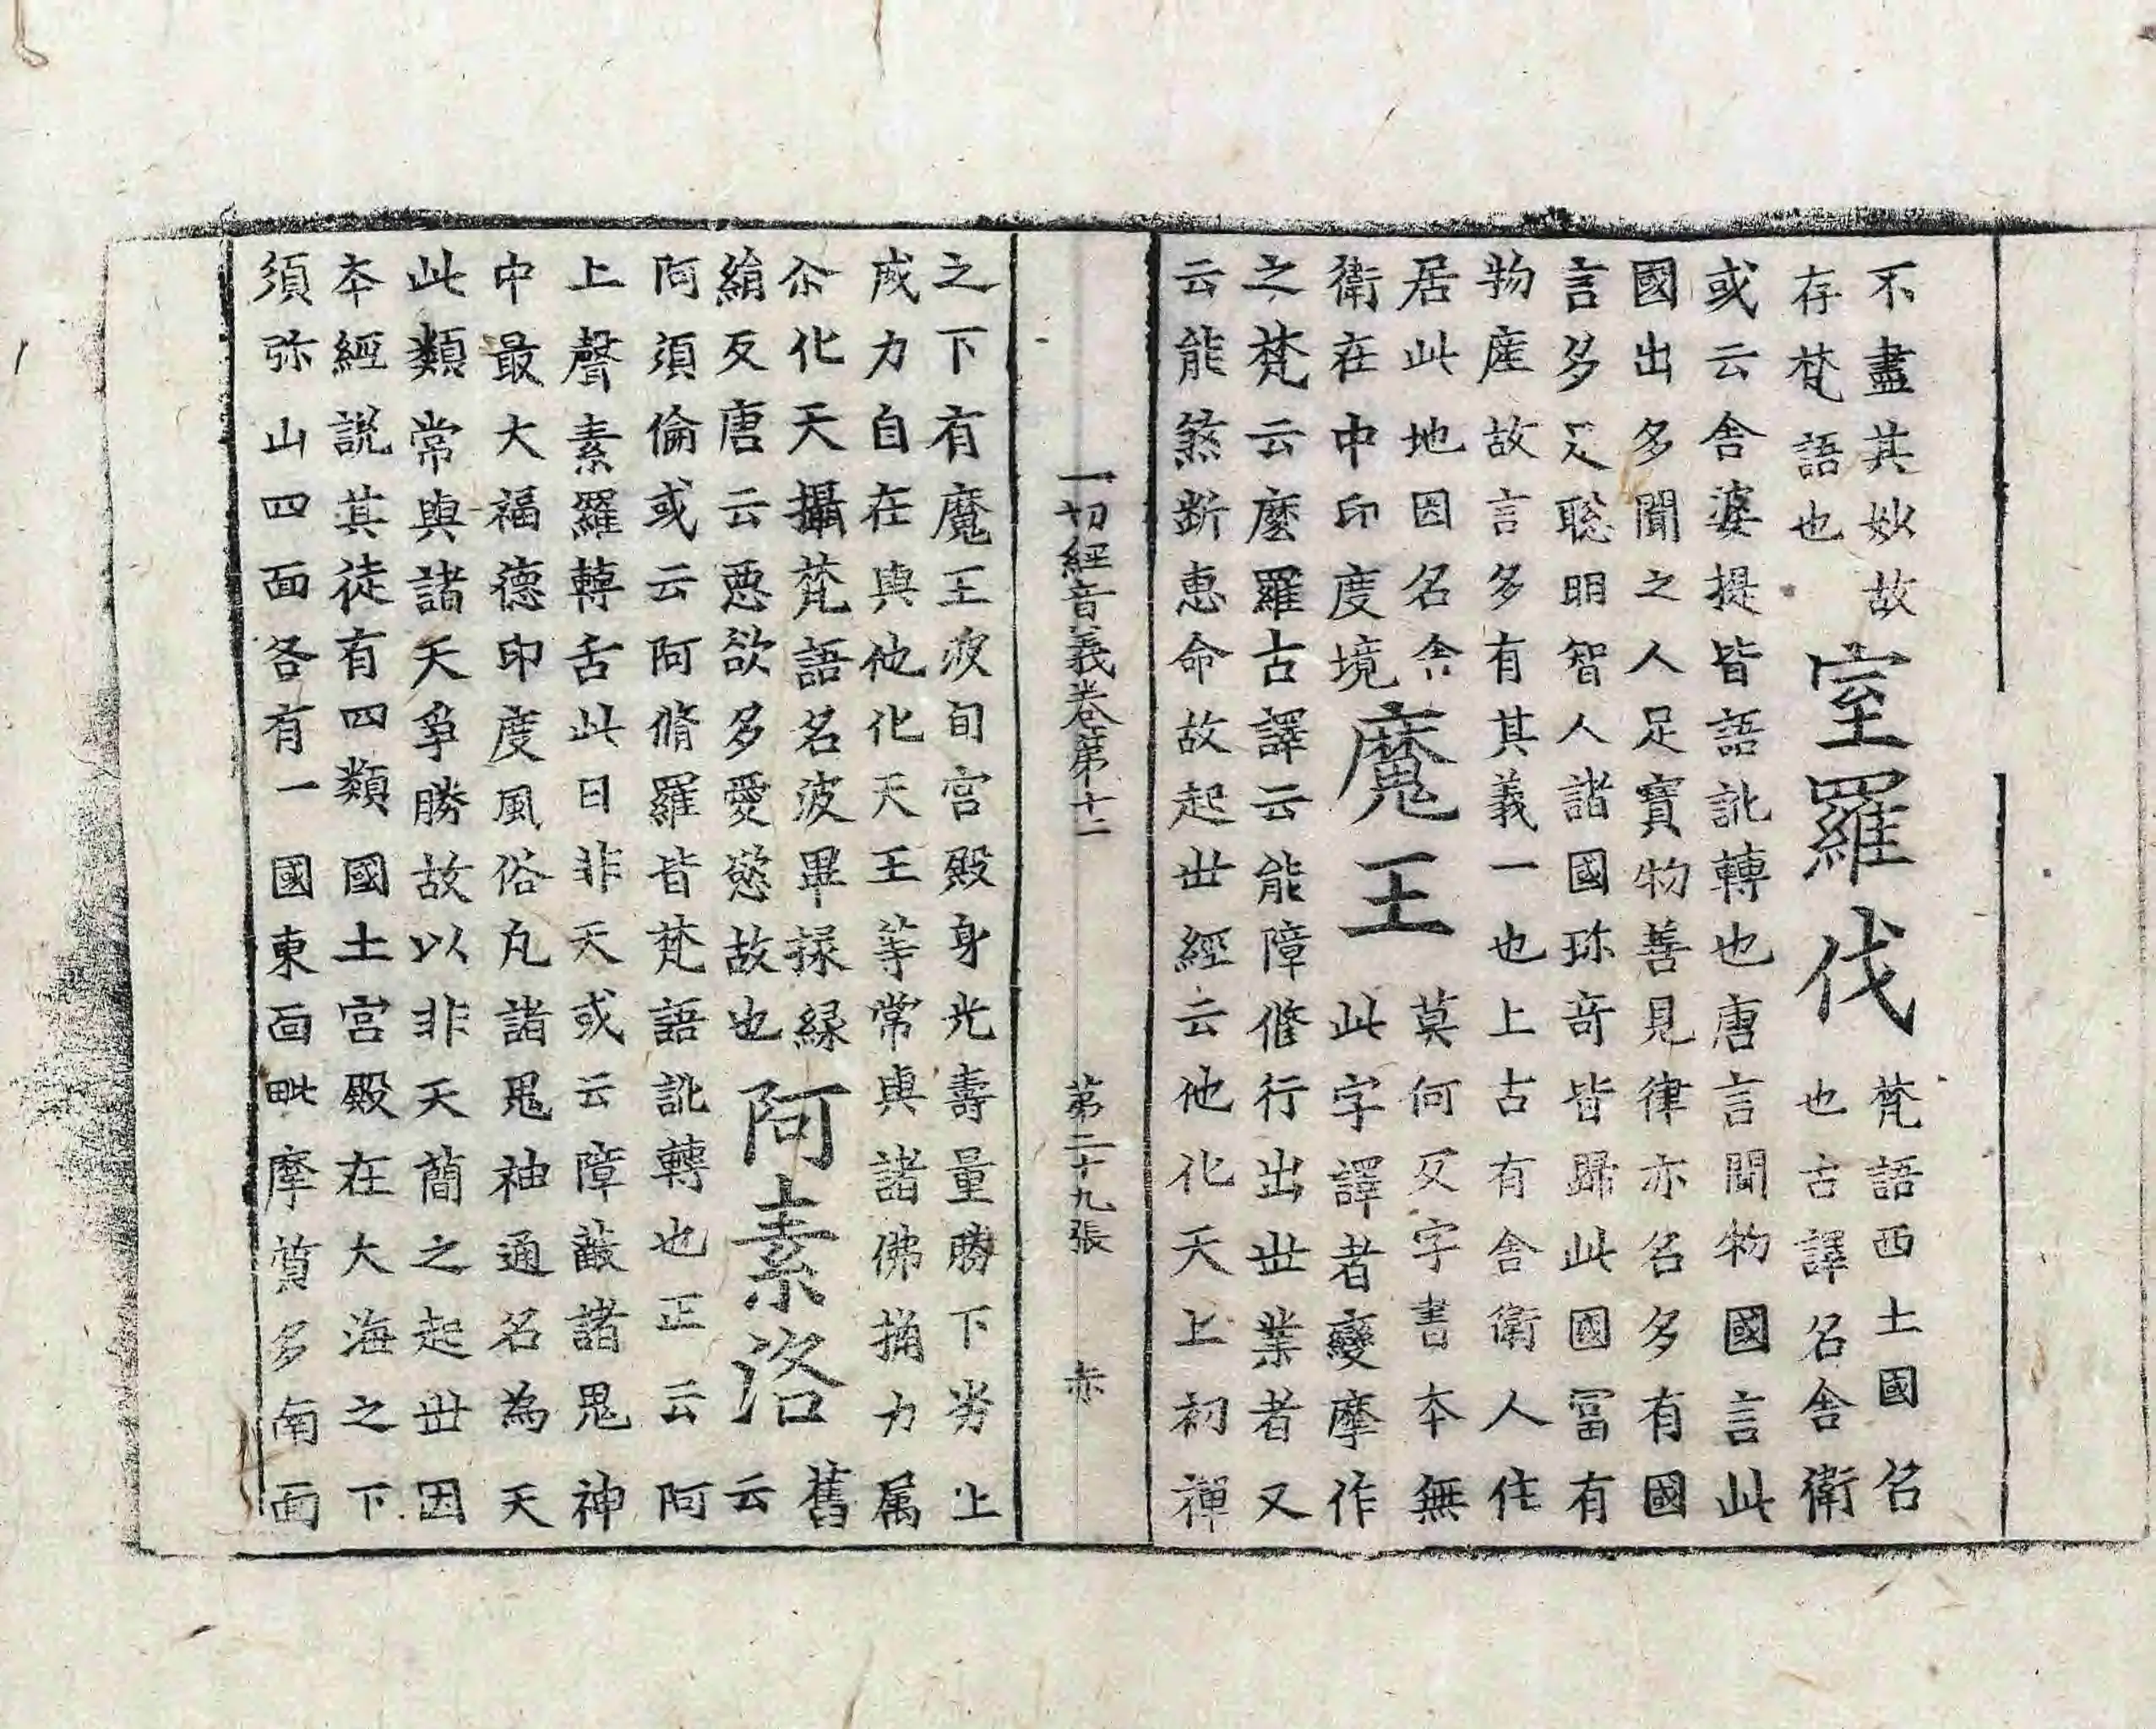 不盡其妙故
存梵語也
室羅伐
梵語西土國名
也古譯名舍衛
或云舍婆提皆語訛轉也唐言聞物國言此
國出多聞之人足寶物善見律亦名多有國
言多足聡明智人諸國珎竒皆歸此國冨有
物産故言多有其義一也上古有舍衛人住
居此地因名舍
衛在中印度境
魔王
莫何反字書本無
此字譯者變摩作
之梵云麼羅古譯云能障修行出丗業者又
云能煞斷惠命故起丗經云他化天上初禪
一切經音義卷第十二 第二十九張 赤
之下有魔王波旬宫殿身光壽量勝下劣上
威力自在與他化天王等常與諸佛捔力属
尒化天攝梵語名波畢掾縁
絹反唐云惡欲多愛慾故也
阿素洛
舊
云
阿須倫或云阿脩羅皆梵語訛轉也正云阿
上聲素羅轉舌此曰非天或云障蔽諸鬼神
中最大福德印度風俗凢諸鬼神通名為天
此類常與諸天爭勝故以非天簡之起丗因
本經説其徒有四類國土宫殿在大海之下
須弥山四面各有一國東面毗摩質多南面